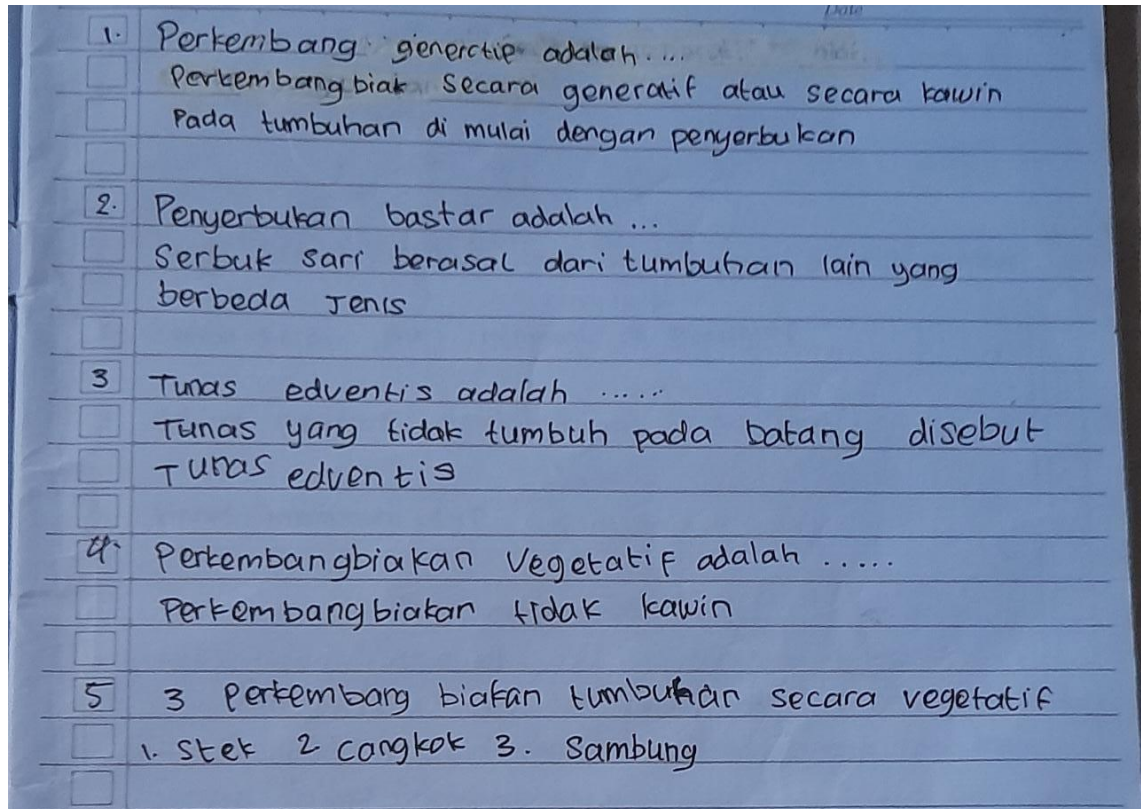 Date
1. Perkembang generctip adalah....
Perkembang biak secara generatif atau secara kawin
Pada tumbuhan di mulai dengan penyerbukan
2. Penyerbukan bastar adalah ...
Serbuk sari berasal dari tumbuhan lain yang
berbeda Jenis
3 Tunas edventis adalah .....
Tunas yang tidak tumbuh pada batang disebut
Tunas edventis
4. Perkembangbiakan Vegetatif adalah .....
Perkembangbiakan tidak kawin
5 3 Perkembang biakan tumbuhan secara vegetatif
1. Stek 2 cangkok 3. Sambung